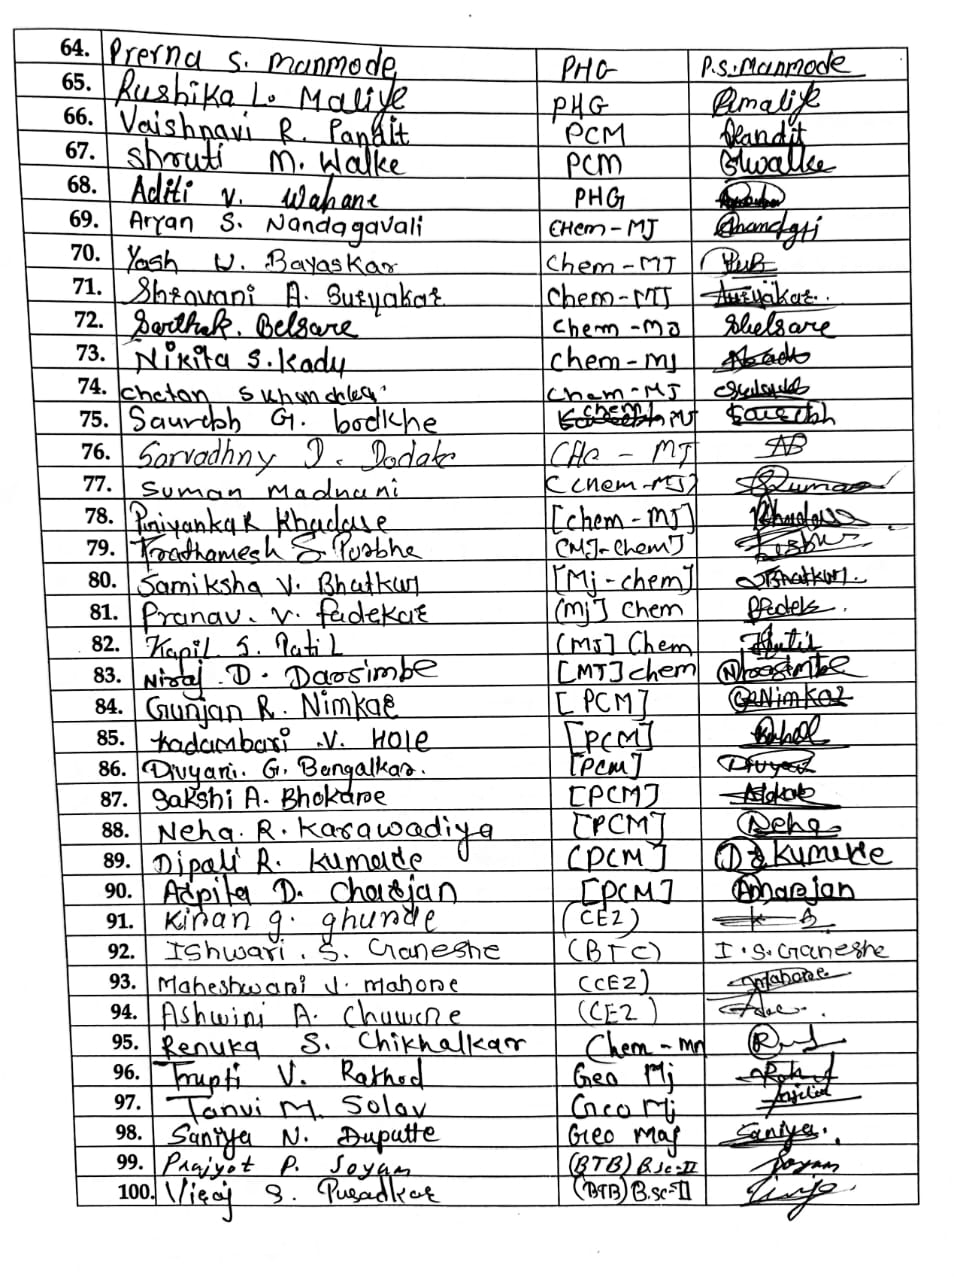 64. Prerna S. Manmode PHG P.S.Manmode
65. Rushika L. Maliye PHG Rmaliye
66. Vaishnavi R. Pandit PCM Pandit
67. Shruti M. Walke PCM Swalke
68. Aditi V. Wahane PHG
69. Aryan S. Nandagavali CHem-MJ
70. Yash W. Bayaskar Chem-MJ
71. Shravani A. Suryakar Chem-MJ Suryakar.
72. Sarthak. Belsare Chem-MJ Sbelsare
73. Nikita S. Kady Chem-MJ
74. Chetan Chem-MJ
75. Saurabh G. bodkhe chem MJ Saurabh
76. Sarvadhny D. Dodake CHe - MJ AB
77. Suman Madnani (Chem-MJ) Suman
78. Priyanka R Khadase [chem-MJ]
79. Prathamesh S. Purbhe (MJ-Chem]
80. Samiksha V. Bhatkur [Mj-chem] Bhatkur.
81. Pranav. V. fadekar (Mj] Chem
82. Kapil S. Patil (MJ] Chem
83. Niraj .D. Darsimbe [MJ] chem
84. Gunjan R. Nimkar [PCM] GNimkar
85. Kadambari .V. HOLE [PCM]
86. Divyani. G. Bengalkar. [PCM]
87. Sakshi A. Bhokare [PCM]
88. Neha. R. Karawadiya [PCM] Neha
89. Dipali R. Kumarde (PCM]
90. Arpita D. Charjan [PCM]
91. Kiran g. ghunde (CEZ)
92. Ishwari . S. Ganeshe (BTC) I.S.Ganeshe
93. Maheshwari J. mahone (CEZ) mahone
94. Ashwini A. (CEZ)
95. Renuka S. Chikhalkar Chem - mn
96. Trupti V. Rathod Geo Mj
97. Tanvi M. Solav Geo Mj
98. Saniya N. Duputte Geo Maj Saniya.
99. Prajyot P. Soyam (BTB) B.sc-II Soyam
100. Viraj S. Pusadkar (BTB) B.sc-II